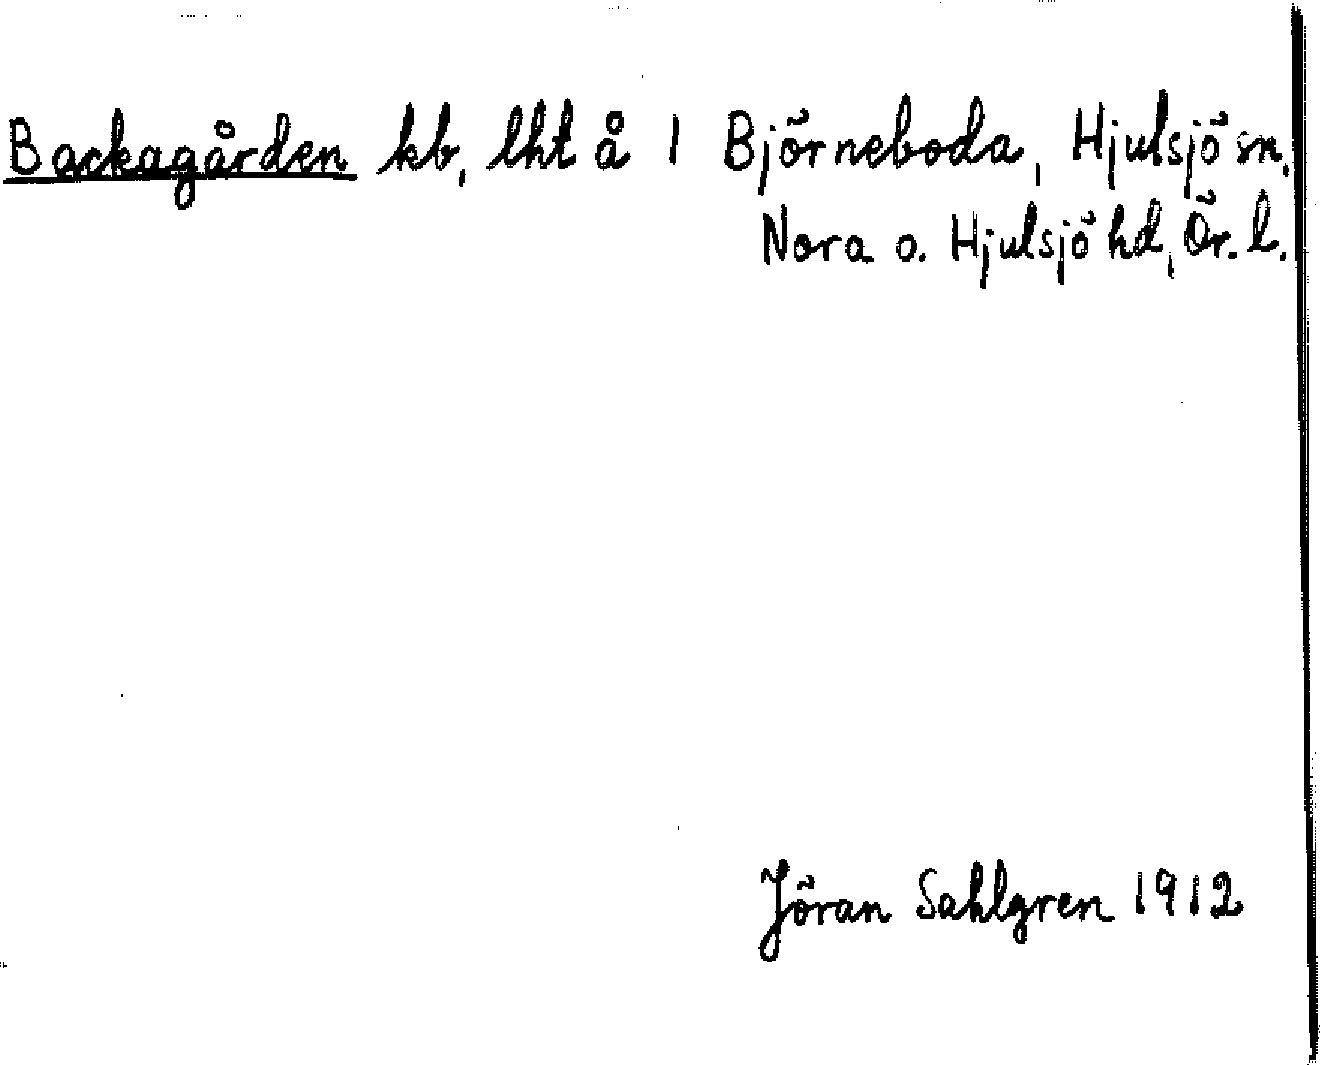 Backagården kb, lht å 1 Björneboda, Hjulsjö sn,
Nora o. Hjulsjö hd, Ör. l.
Jöran Sahlgren 1912